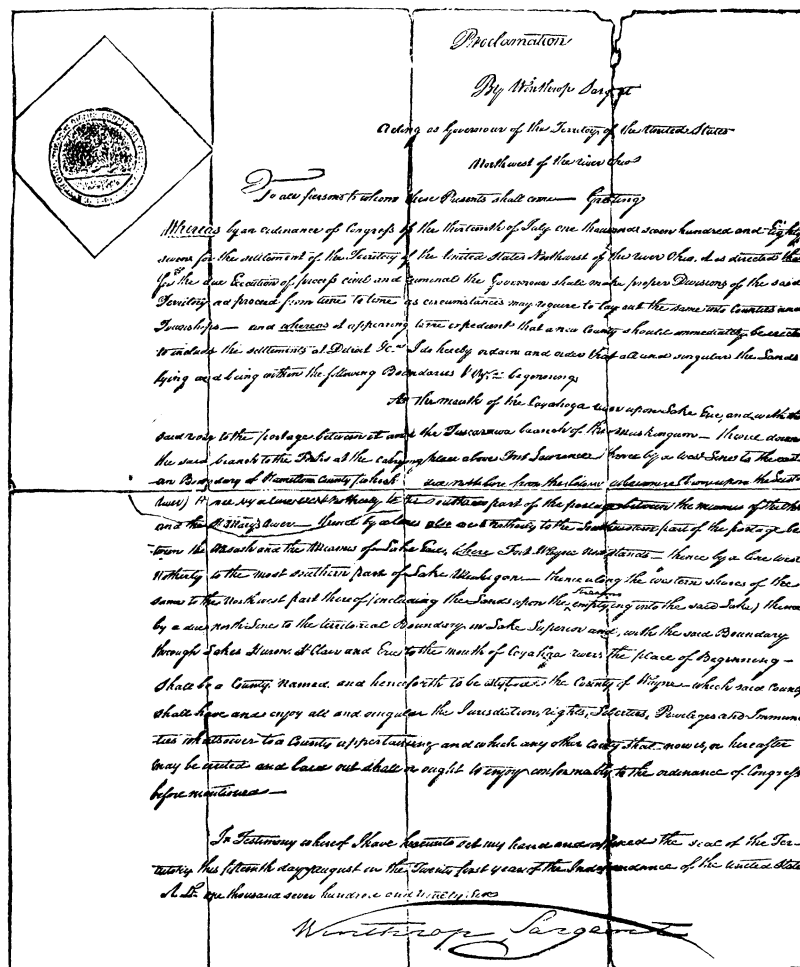 Proclamation
By Winthrop Sargent
Acting as Governour of the Territory of the United States
Northwest of the river Ohio
To all persons to whom these Presents shall come — Greeting
Whereas by an ordinance of Congress of the thirteenth of July one thousand seven hundred and Eighty
seven for the settlement of the Territory of the United States Northwest of the river Ohio, it is directed that
for the due Execution of process civil and criminal the Governour shall make proper Divisions of the said
Territory and proceed from time to time as circumstances may require to lay out the same into Counties and
Townships — and whereas it appearing to me expedient that a new County should immediately be erected
to include the settlements at Detroit &c. I do hereby ordain and order that all and singular the Lands
lying and being within the following Boundaries Viz. beginning
At the mouth of the Cayahoga river upon Lake Erie, and with the
said river to the portage between it and the Tuscarawa branch of the Muskingum — thence down
the said branch to the Forks at the carrying place above Fort Lawrence, thence by a west Line to the east
ern Boundary of Hamilton County (which is a due north line from the lower Shawanese Town upon the Sciota
river) thence by a line west northerly to the southern part of the portage between the Miamis of the Ohio
and the St Mary's river — thence by a line also west northerly to the Southwestern part of the portage be
tween the Wabash and the Miamis of Lake Erie, where Fort Wayne now stands — thence by a line west
Northerly to the most southern part of Lake Michigan — thence along the western shores of the
same to the Northwest part thereof (including the Lands upon the streams emptying into the said Lake) thence
by a due north Line to the territorial Boundary in Lake Superior and, with the said Boundary
through Lakes Huron, St Clair and Erie to the mouth of Cayahoga river, the place of Beginning —
shall be a County Named and henceforth to be styled the County of Wayne — which said County
shall have and enjoy all and singular the Jurisdiction, rights, Liberties, Privileges and Immuni
ties whatsoever to a County appertaining and which any other County that now is, or hereafter
may be erected and laid out shall or ought to enjoy conformably to the ordinance of Congress
before mentioned —
In Testimony whereof I have hereunto set my hand and affixed the seal of the Ter-
ritory this fifteenth day August in the Twenty first year of the Independance of the United States
A D. one thousand seven hundred and ninety six
Winthrop Sargent